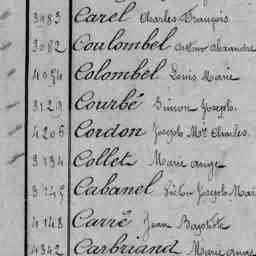 3983 Carel Charles François
3082 Coulombel Arthur Alexandre
4054 Colombel Louis Marie
3129 Courbé Simon Joseph.
4206 Cordon Joseph Mie Charles.
3134 Collet Marie Ange
3745 Cabanel Victor Joseph Mari
4148 Carré Jean Baptiste
4342 Carbriand Marie Ange